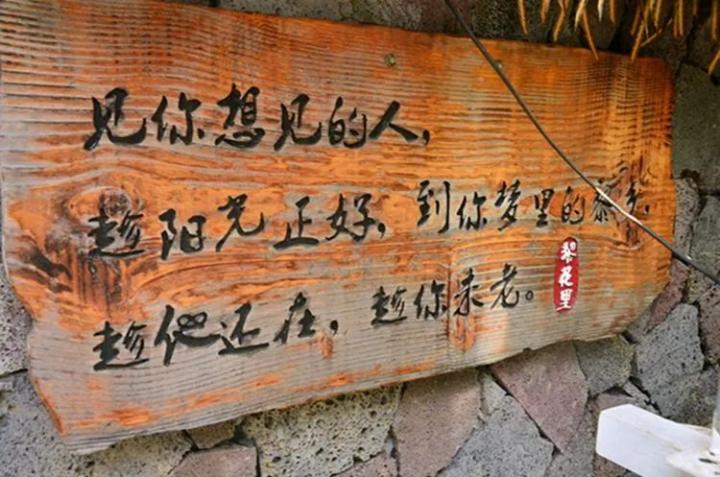 见你想见的人,
趁阳光正好,到你梦里的黎,
趁他还在,趁你未老。
花里